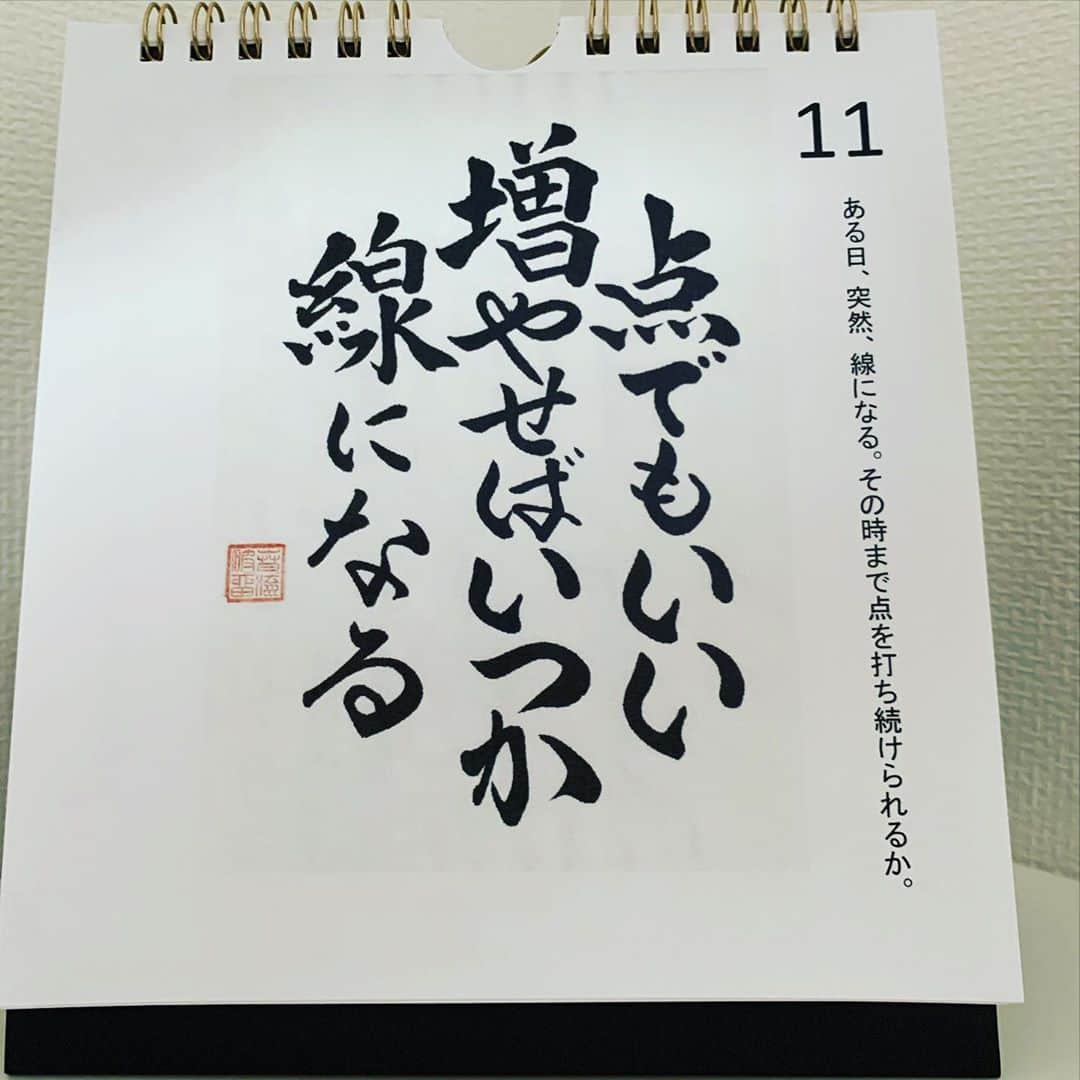 11
ある日、突然、線になる。その時まで点を打ち続けられるか。
点でもいい
増やせばいつか
線になる